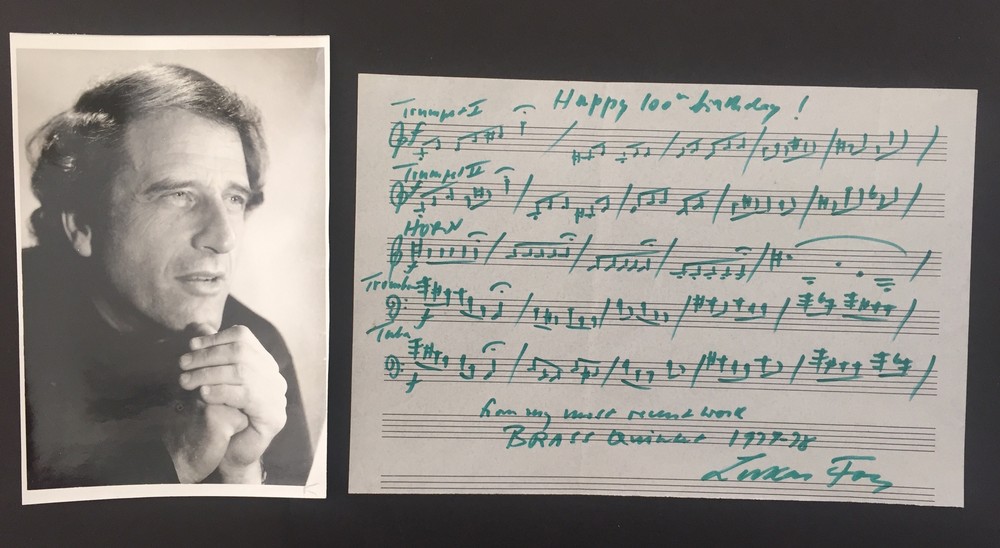 Happy 100th birthday!
Trumpet I
Trumpet II
HORN
Trombone
Tuba
from my most recent work
BRASS Quintet 1977-78
Lukas Foss